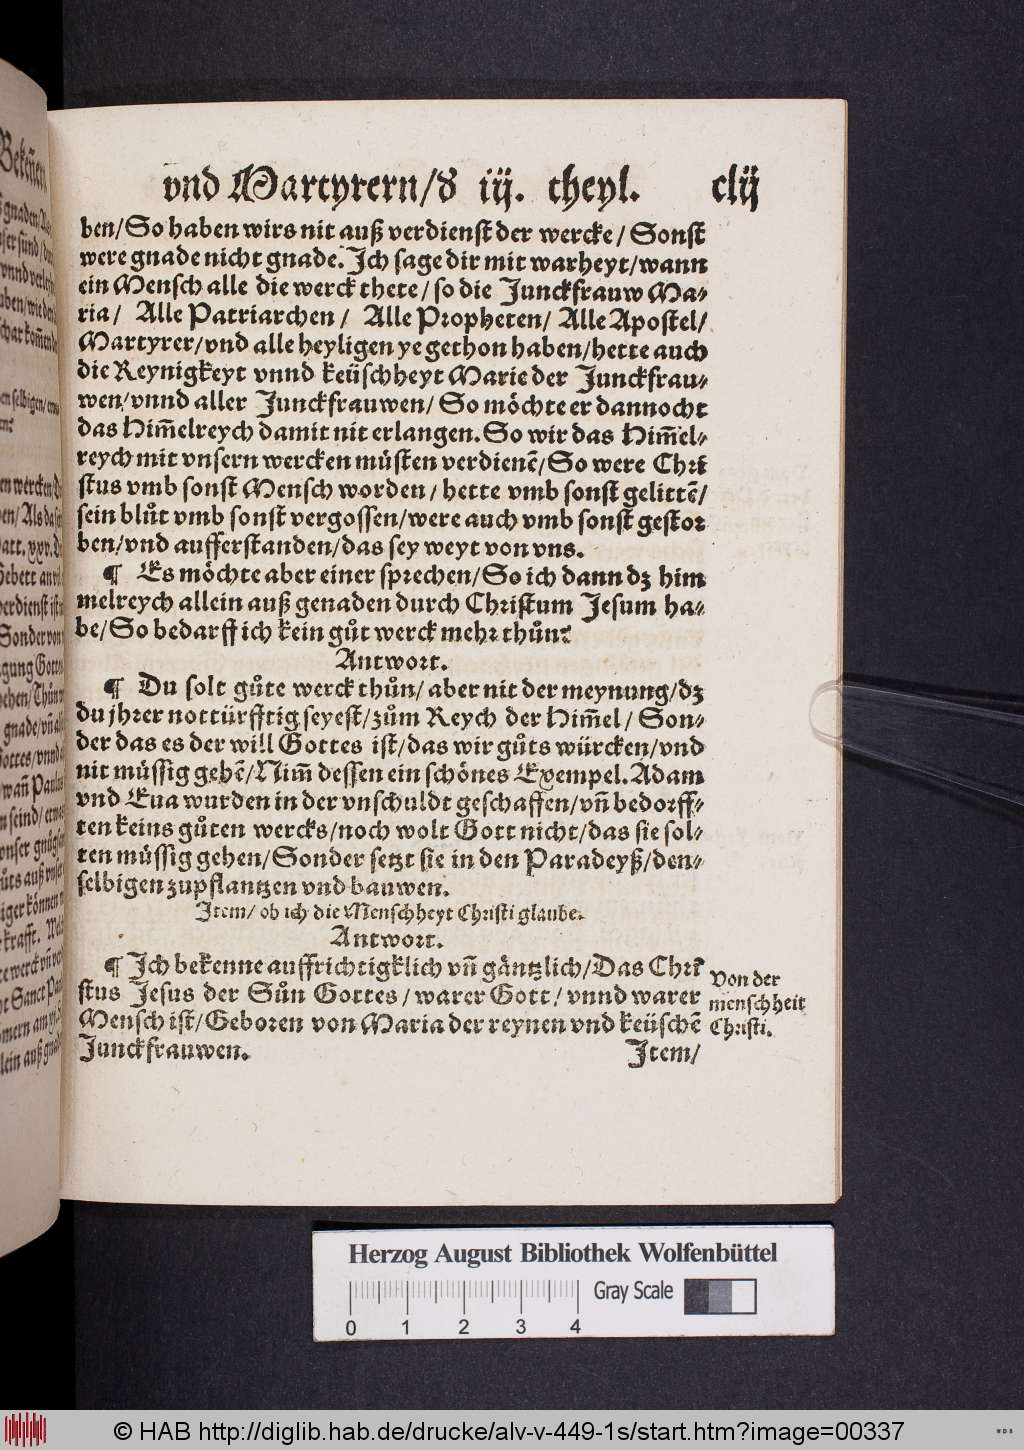 vnd Martyrern/ď iij. theyl. clij
ben/So haben wirs nit auß verdienst der wercke/ Sonst
were gnade nicht gnade. Ich sage dir mit warheyt/wann
ein Mensch alle die werck thete/ so die Junckfrauw Ma-
ria/ Alle Patriarchen/ Alle Propheten/ Alle Apostel/
Martyrer/vnd alle heyligen ye gethon haben/hette auch
die Reynigkeyt vnnd keüschheyt Marie der Junckfrau-
wen/vnnd aller Junckfrauwen/ So möchte er dannocht
das Him̃elreych damit nit erlangen. So wir das Him̃el-
reych mit vnsern wercken müsten verdienẽ/So were Chri
stus vmb sonst Mensch worden/ hette vmb sonst gelittẽ/
sein blůt vmb sonst vergossen/were auch vmb sonst gestor
ben/vnd aufferstanden/das sey weyt von vns.
¶ Es möchte aber einer sprechen/So ich dann dz him
melreych allein auß genaden durch Christum Jesum ha-
be/So bedarff ich kein gůt werck mehr thůn?
Antwort.
¶ Du solt gůte werck thůn/ aber nit der meynung/dz
du jhrer nottürfftig seyest/zům Reych der Him̃el/ Son-
der das es der will Gottes ist/das wir gůts würcken/vnd
nit müssig gehẽ/Nim̃ dessen ein schönes Exempel. Adam
vnd Eua wurden in der vnschuldt geschaffen/vñ bedorff-
ten keins gůten wercks/noch wolt Gott nicht/das sie sol-
ten müssig gehen/Sonder setzt sie in den Paradeyß/den-
selbigen zupflantzen vnd bauwen.
Item/ ob ich die Menschheyt Christi glaube.
Antwort.
¶ Ich bekenne auffrichtigklich vñ gäntzlich/Das Chri
stus Jesus der Sůn Gottes/warer Gott/vnnd warer
Mensch ist/Geboren von Maria der reynen vnd keüschẽ
Junckfrauwen. Item/
Von der
menschheit
Christi.
Herzog August Bibliothek Wolfenbüttel
Gray Scale
0 1 2 3 4
© HAB http://diglib.hab.de/drucke/alv-v-449-1s/start.htm?image=00337